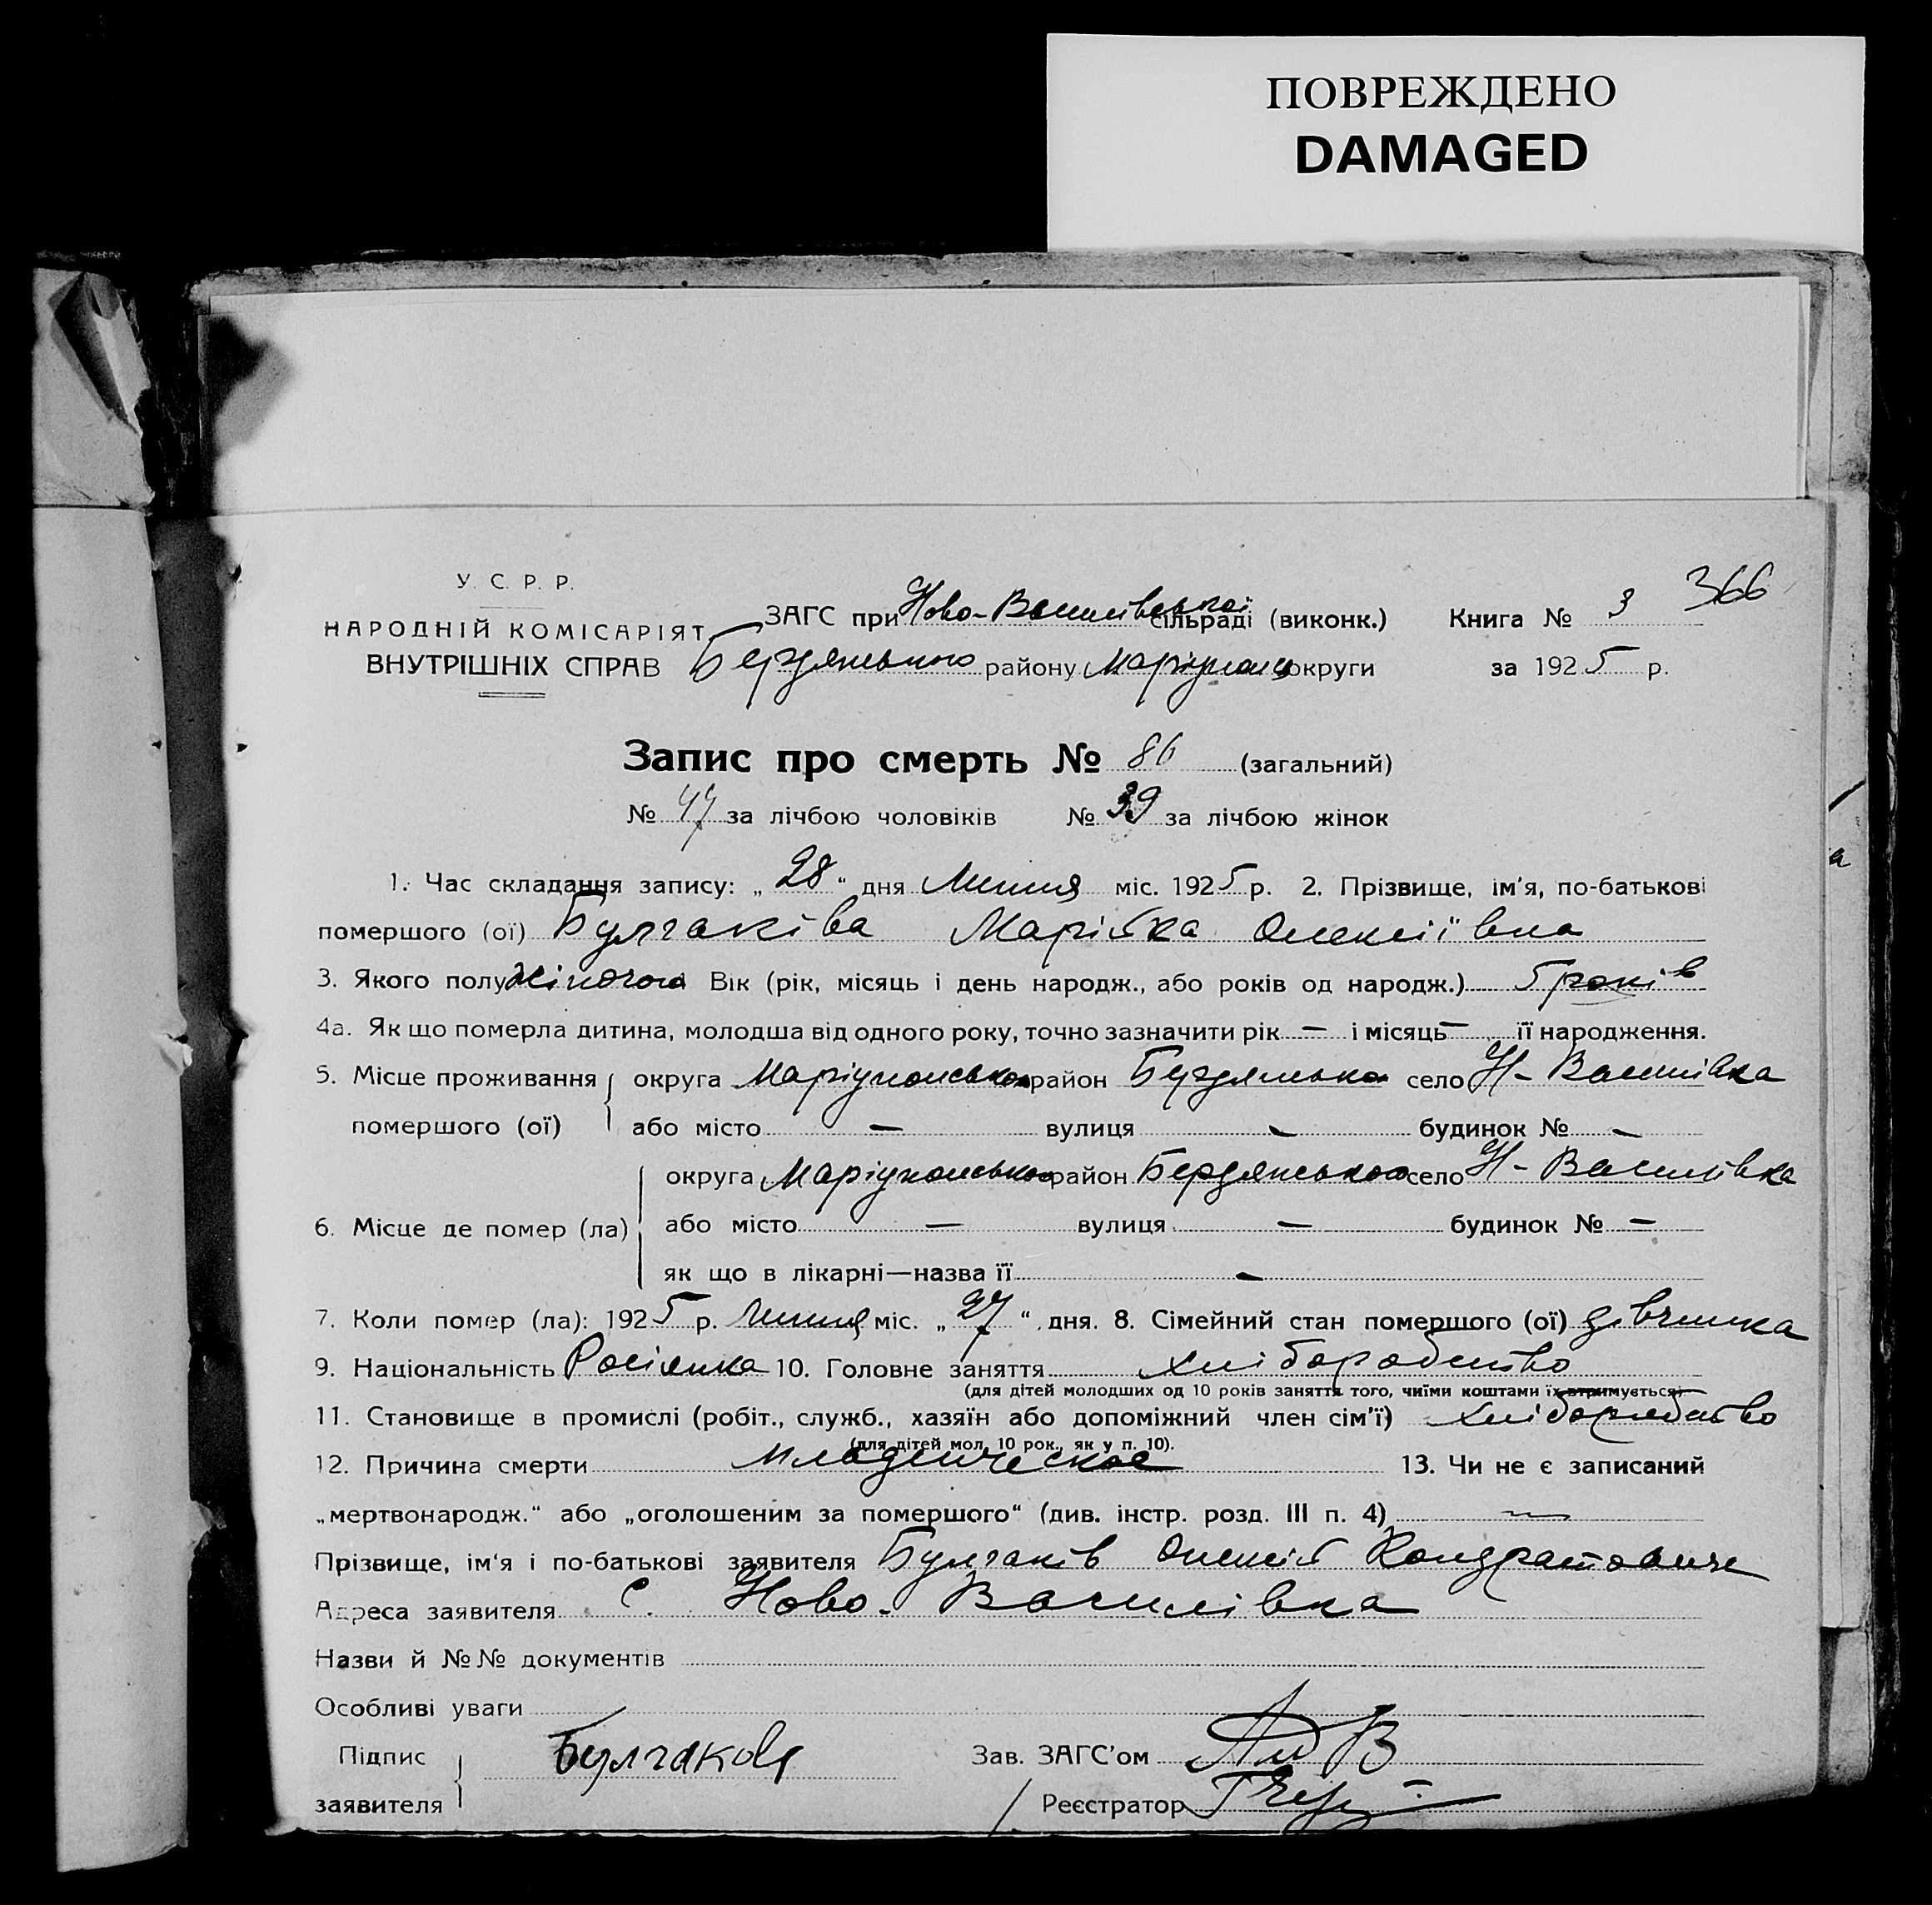 ПОВРЕЖДЕНО
DAMAGED
366
У. С. Р. Р.
НАРОДНІЙ КОМІСАРІЯТ
ВНУТРІШНІХ СПРАВ
ЗАГС при Ново-Василівської сільраді (виконк.) Книга № 3
Бердянського району Маріупольськ округи за 1925 р.
Запис про смерть № 86 (загальний)
№ 47 за лічбою чоловіків № 39 за лічбою жінок
1. Час складання запису: „28“ дня Липня міс. 1925 р. 2. Прізвище, ім'я, по-батькові
помершого (ої) Булгаківа Марійка Олексіївна
3. Якого полу жіночого Вік (рік, місяць і день народж., або років од народж.) 5 років
4а. Як що померла дитина, молодша від одного року, точно зазначити рік — і місяць — її народження.
5. Місце проживання округа Маріупольського район Бердянсько село Н-Василівка
помершого (ої) або місто — вулиця — будинок № —
округа Маріупольського район Бердянського село Н-Василівка
6. Місце де помер (ла) або місто — вулиця — будинок № —
як що в лікарні—назва її —
7. Коли помер (ла): 1925 р. Липня міс. „27“ дня. 8. Сімейний стан помершого (ої) дівчинка
9. Національність Росіянка 10. Головне заняття хліборобство
(для дітей молодших од 10 років заняття того, чиїми коштами їх втримується)
11. Становище в промислі (робіт., служб., хазяїн або допоміжний член сім'ї) хліборобство
(для дітей мол. 10 рок., як у п. 10).
12. Причина смерти младенческое 13. Чи не є записаний
„мертвонародж.“ або „оголошеним за помершого“ (див. інстр. розд. III п. 4) —
Прізвище, ім'я і по-батькові заявителя Булгаків Олексій Кондратовиче
Адреса заявителя с. Ново-Василівка
Назви й №№ документів
Особливі уваги
Підпис
заявителя
Булгакова
Зав. ЗАГС'ом
Реєстратор